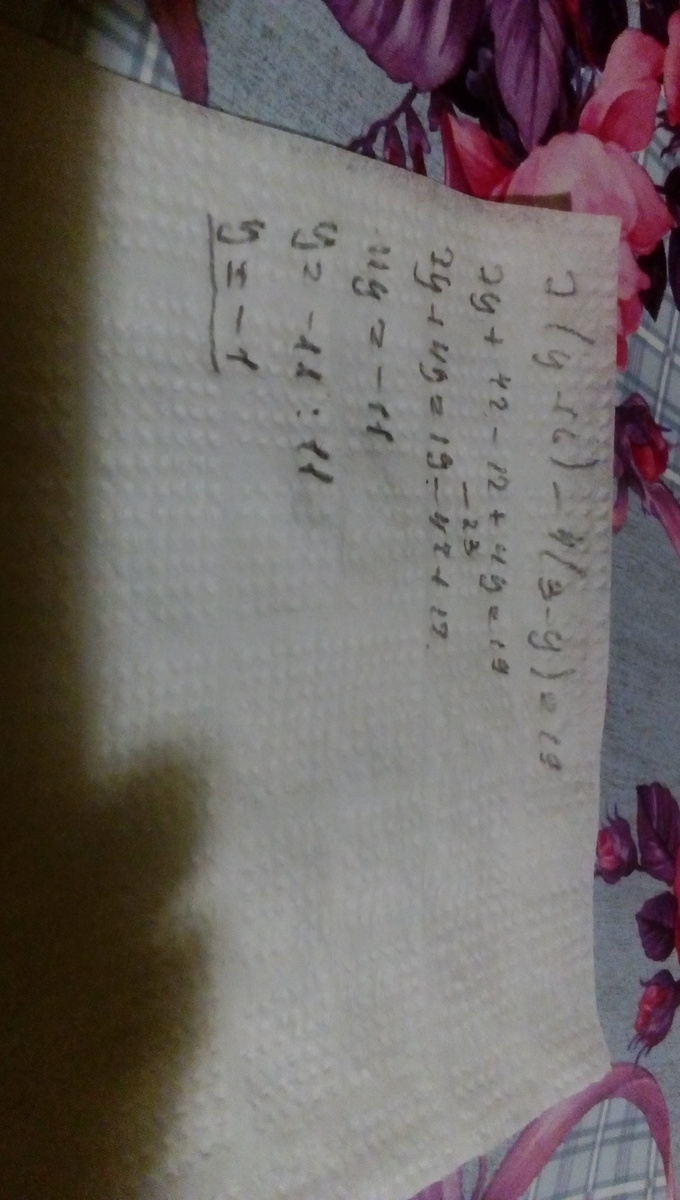 7(y+6)-4(3-y)=19
7y+42-12+4y=19
-23
7y+4y=19-42+12
11y=-11
y=-11:11
y=-1